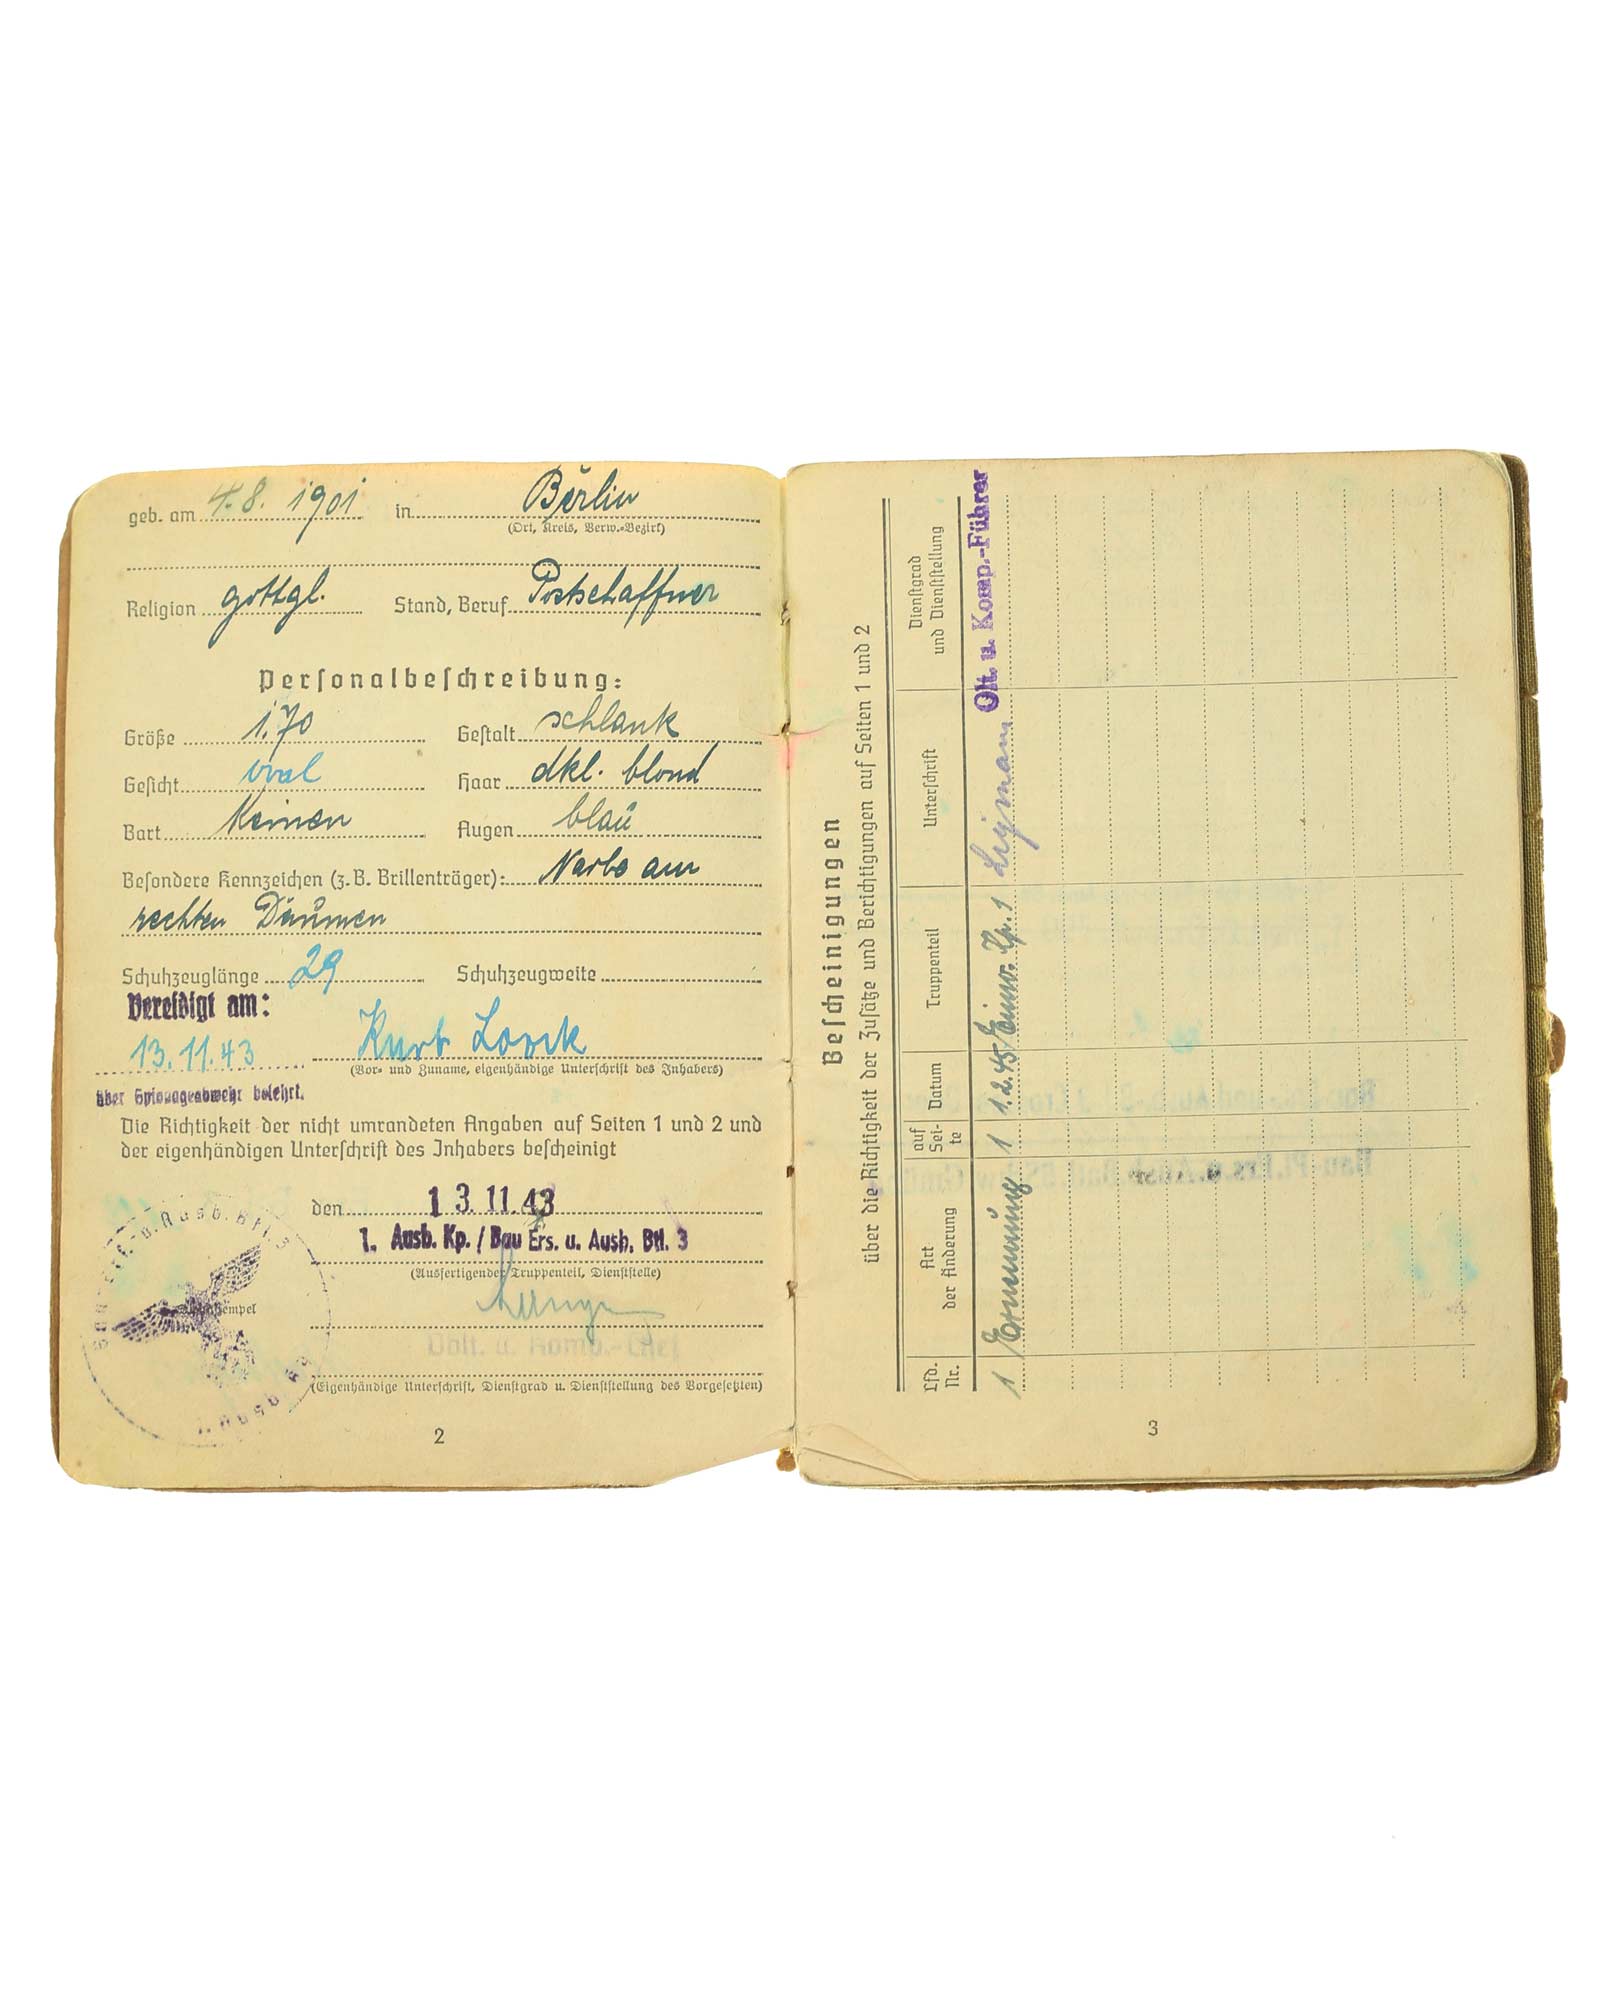 geb. am 4.8. 1901 in Berlin
(Ort, Kreis, Verw.-Bezirk)
Religion gottgl. Stand, Beruf Postschaffner
Personalbeschreibung:
Größe 1.70 Gestalt schlank
Gesicht oval Haar dkl. blond
Bart Keinen Augen blau
Besondere Kennzeichen (z.B. Brillenträger): Narbe am
rechten Daumen
Schuhzeuglänge 29 Schuhzeugweite
Vereidigt am:
13.11.43 Kurt
(Vor- und Zuname, eigenhändige Unterschrift des Inhabers)
über Spionageabwehr belehrt.
Die Richtigkeit der nicht umrandeten Angaben auf Seiten 1 und 2 und
der eigenhändigen Unterschrift des Inhabers bescheinigt
den 13.11.43
1. Ausb. Kp. / Bau Ers. u. Ausb. Btl. 3
(Ausfertigender Truppenteil, Dienststelle)
u. Komp.-Chef
(Eigenhändige Unterschrift, Dienstgrad u. Dienststellung des Vorgesetzten)
2
Bescheinigungen
über die Richtigkeit der Zusätze und Berichtigungen auf Seiten 1 und 2
Lfd. Nr. Art der Änderung auf Sei-te Datum Truppenteil Unterschrift Dienstgrad und Dienststellung
1 Ernennung 1 1.2.45 Olt. u. Komp.-Führer
3